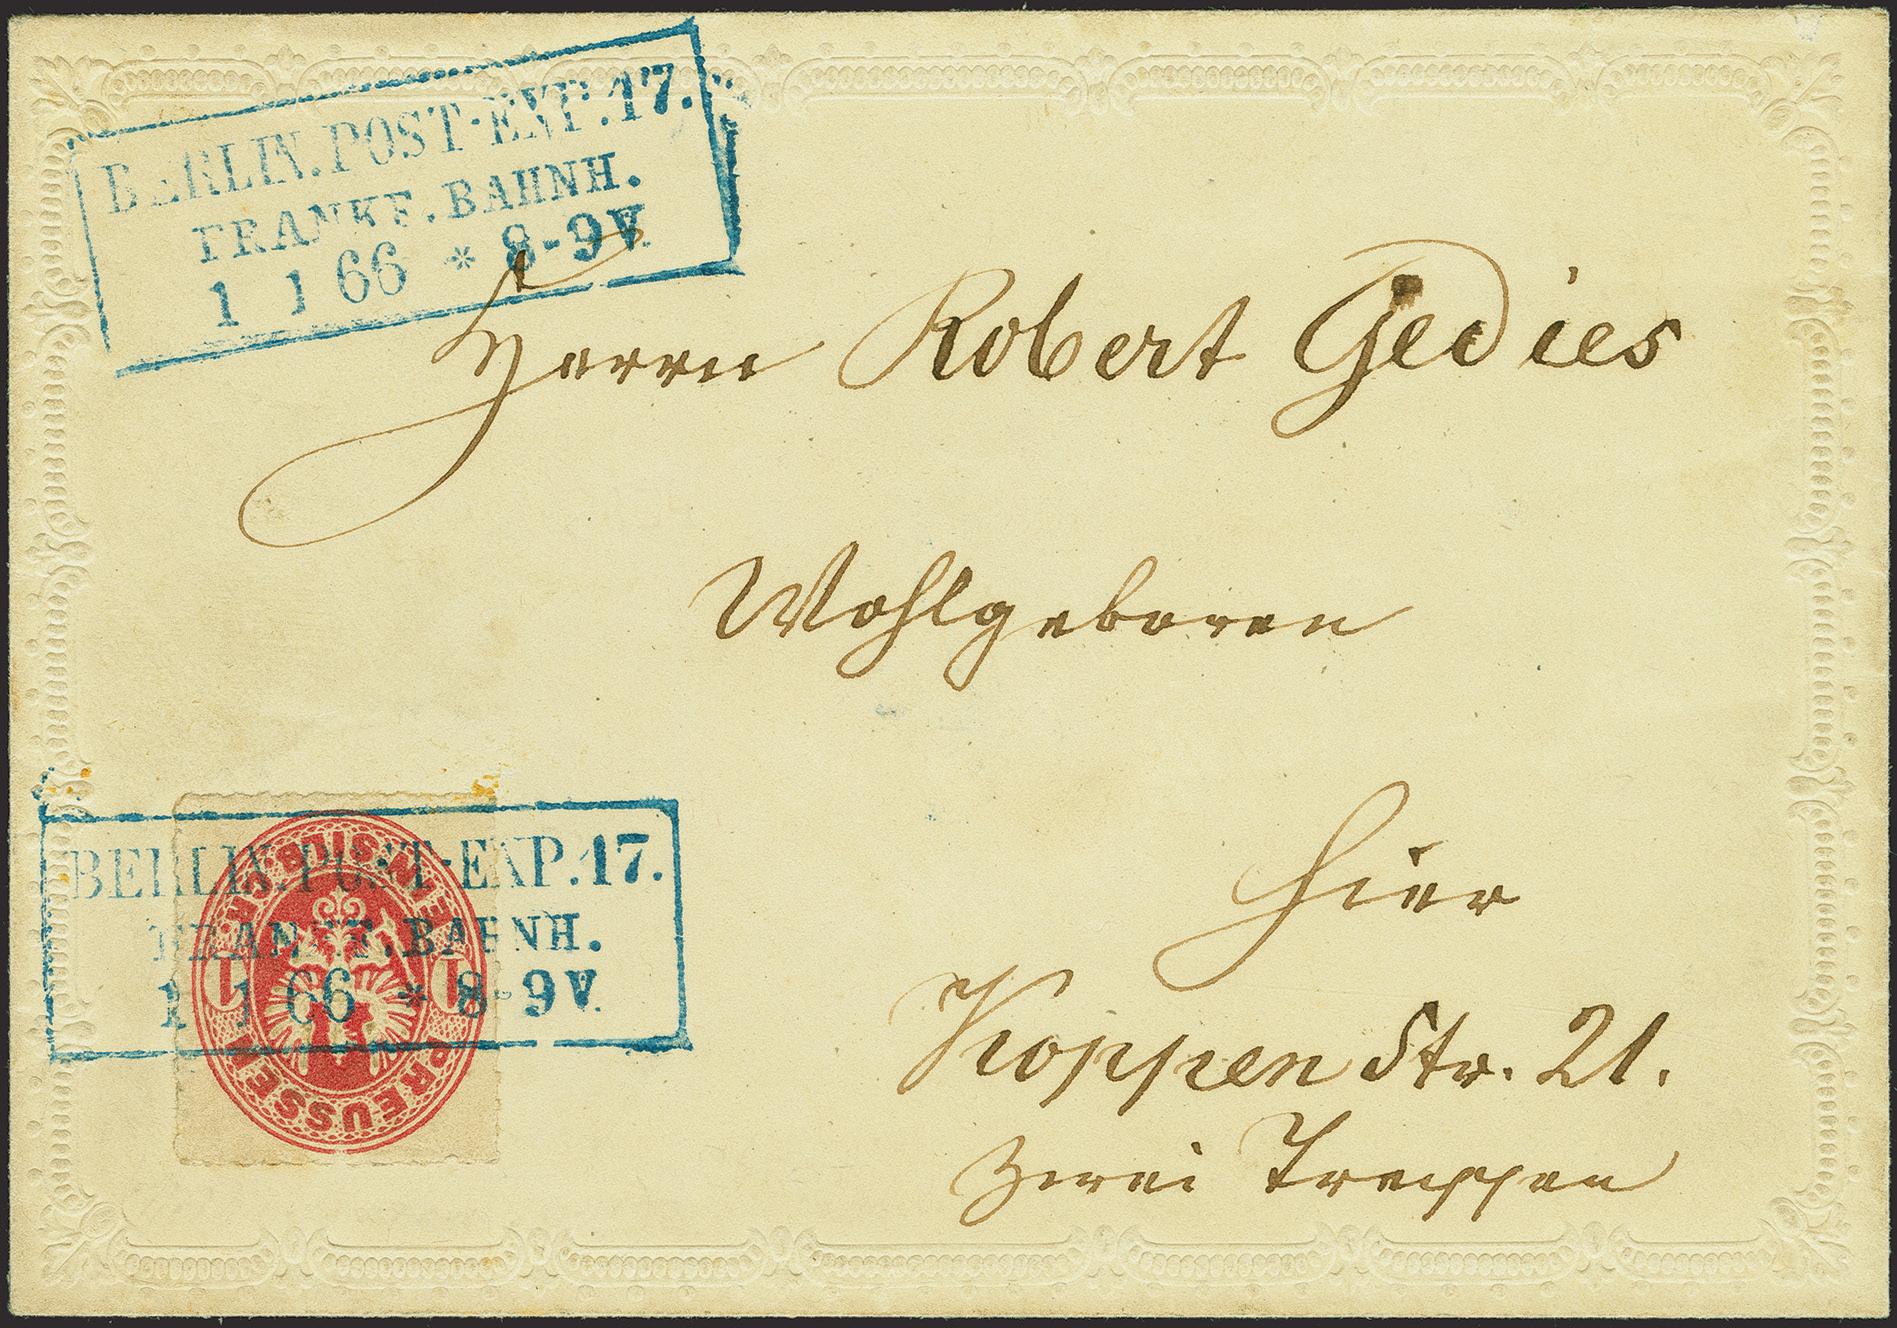 BERLIN. POST-EXP. 17.
FRANKF. BAHNH.
1 1 66 * 8-9 V.
Herrn Robert Gedies
Wohlgeboren
hier
Koppen Str. 21.
zwei Treppen
BERLIN. POST-EXP. 17.
FRANKF. BAHNH.
1 1 66 * 8-9 V.
EIN SILB. GR.
1 1
PREUSSEN